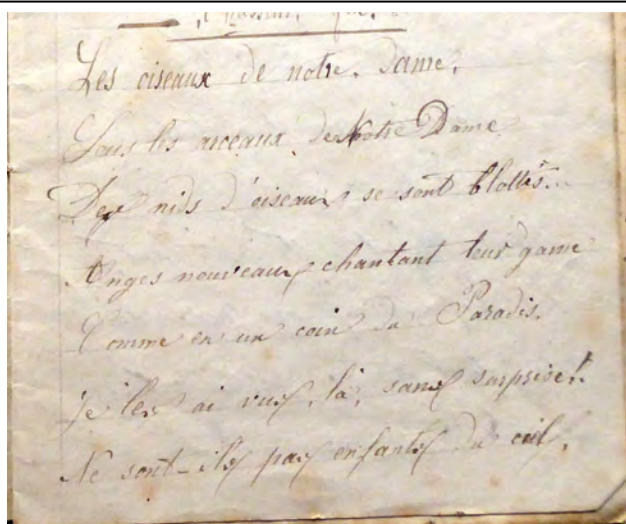 Les oiseaux de notre. Dame.
Sous les arceaux de Notre Dame
Des nids d'oiseaux se sont blottis..
Anges nouveaux chantant leur game
Comme en un coin du Paradis.
Je les ai vus, là, sans surprise!.
Ne sont-ils pas enfants du ciel,